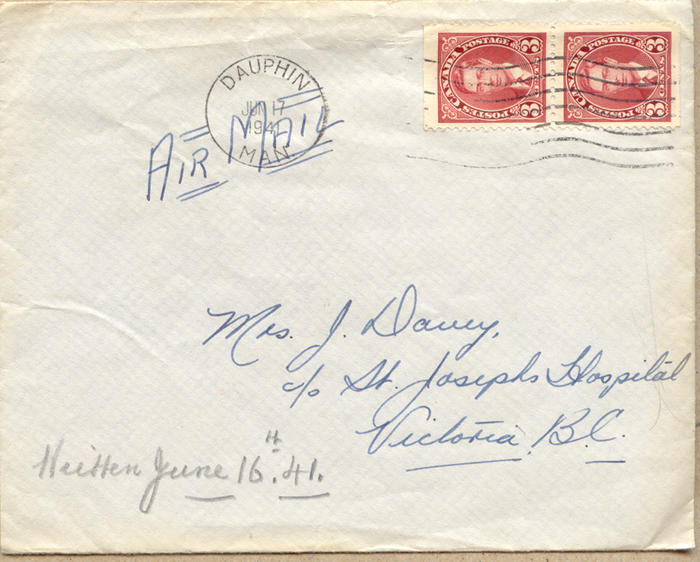 DAUPHIN
JUN 17
1941
MAN
CANADA POSTAGE
POSTES
3 3
CANADA POSTAGE
POSTES
3 3
AIR MAIL
Mrs. J. Davey,
c/o St. Josephs Hospital
Victoria, B.C.
Written June 16th. 41.